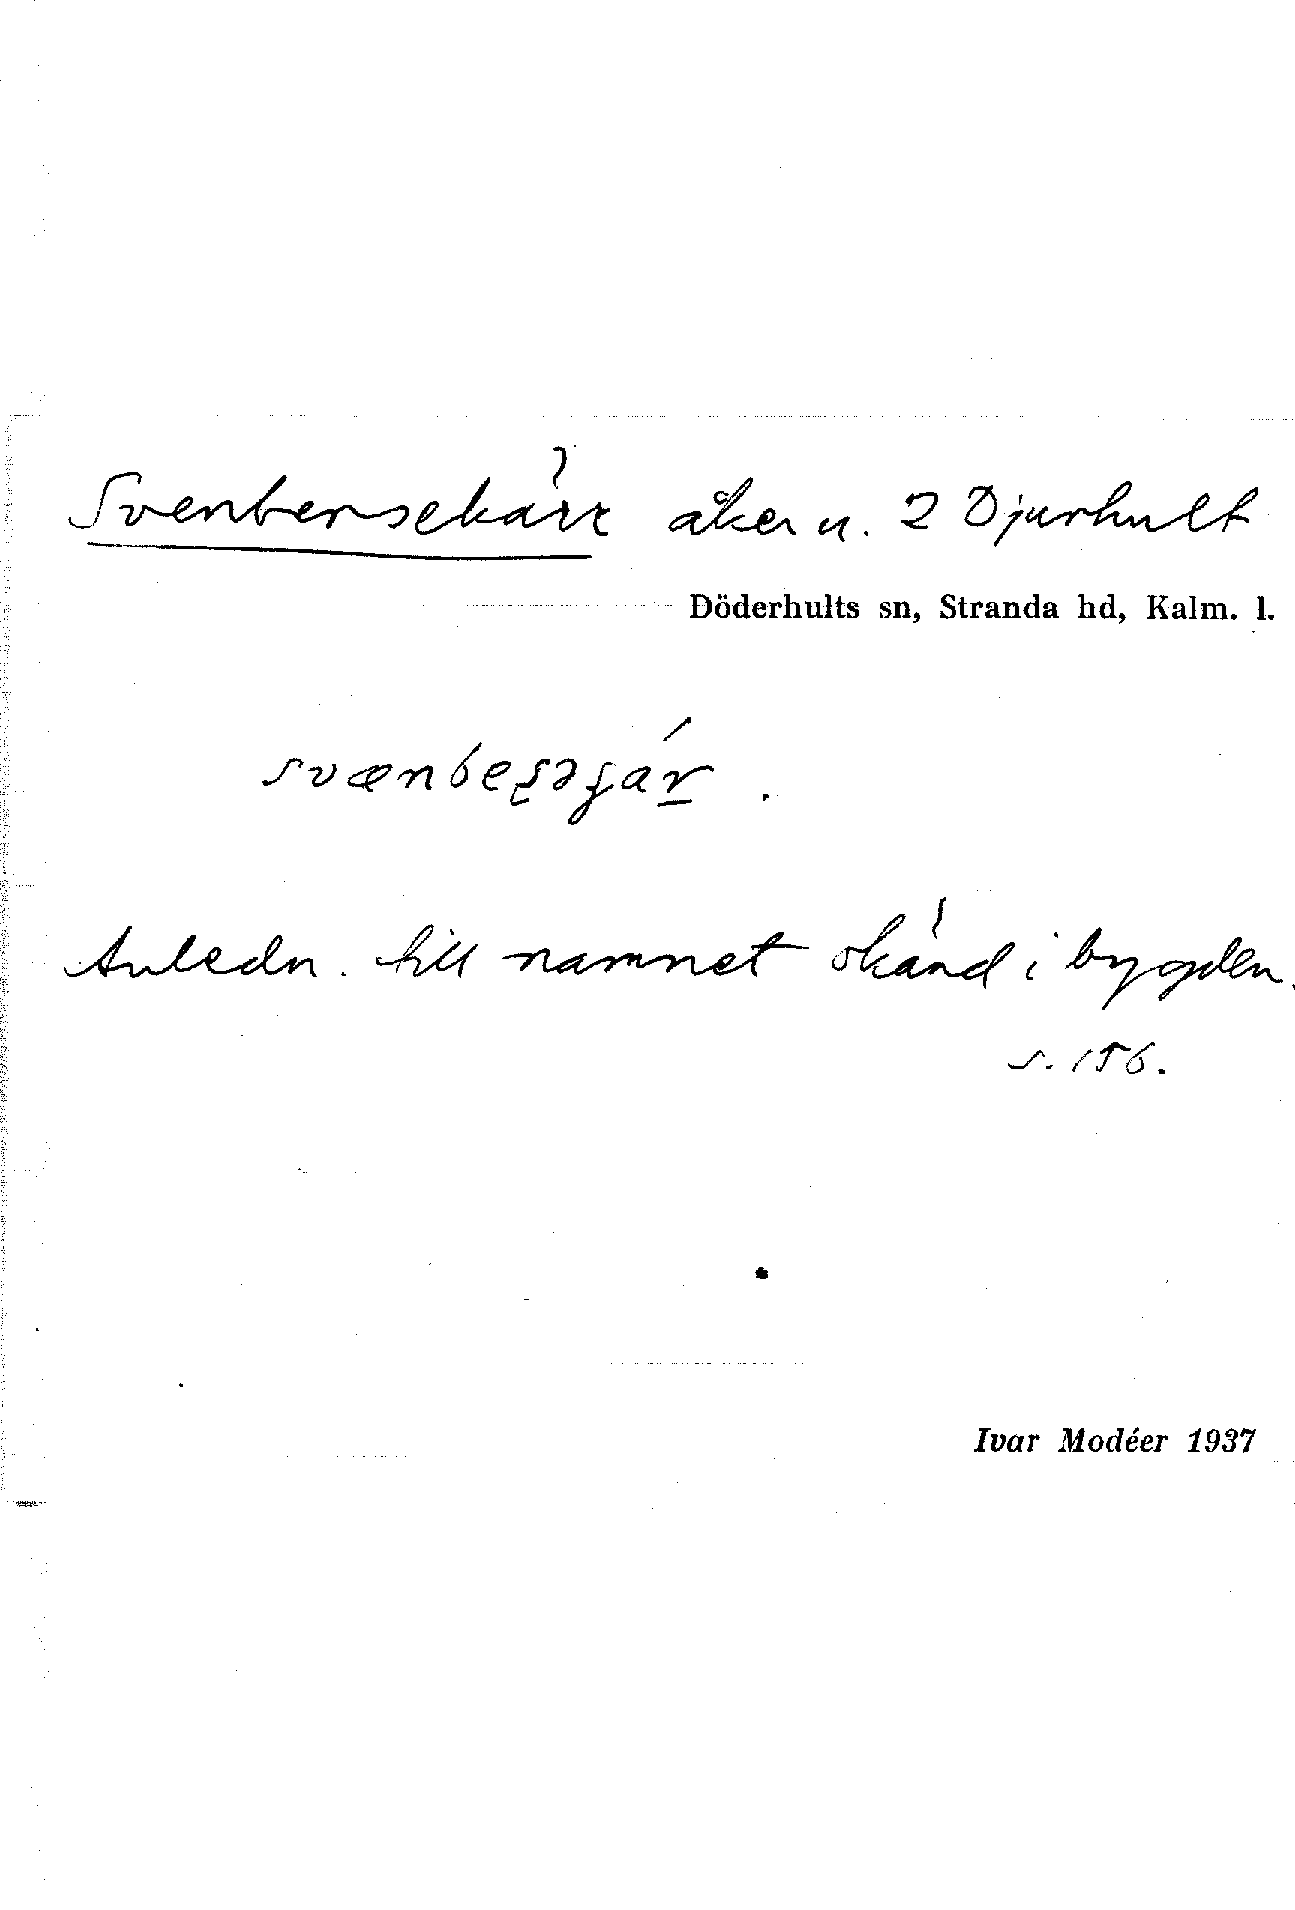 Svenbersekärr åker u. 2 Djurhult
Döderhults sn, Stranda hd, Kalm. l.
Anledn. till namnet okänd i bygden.
s. 156.
Ivar Modéer 1937